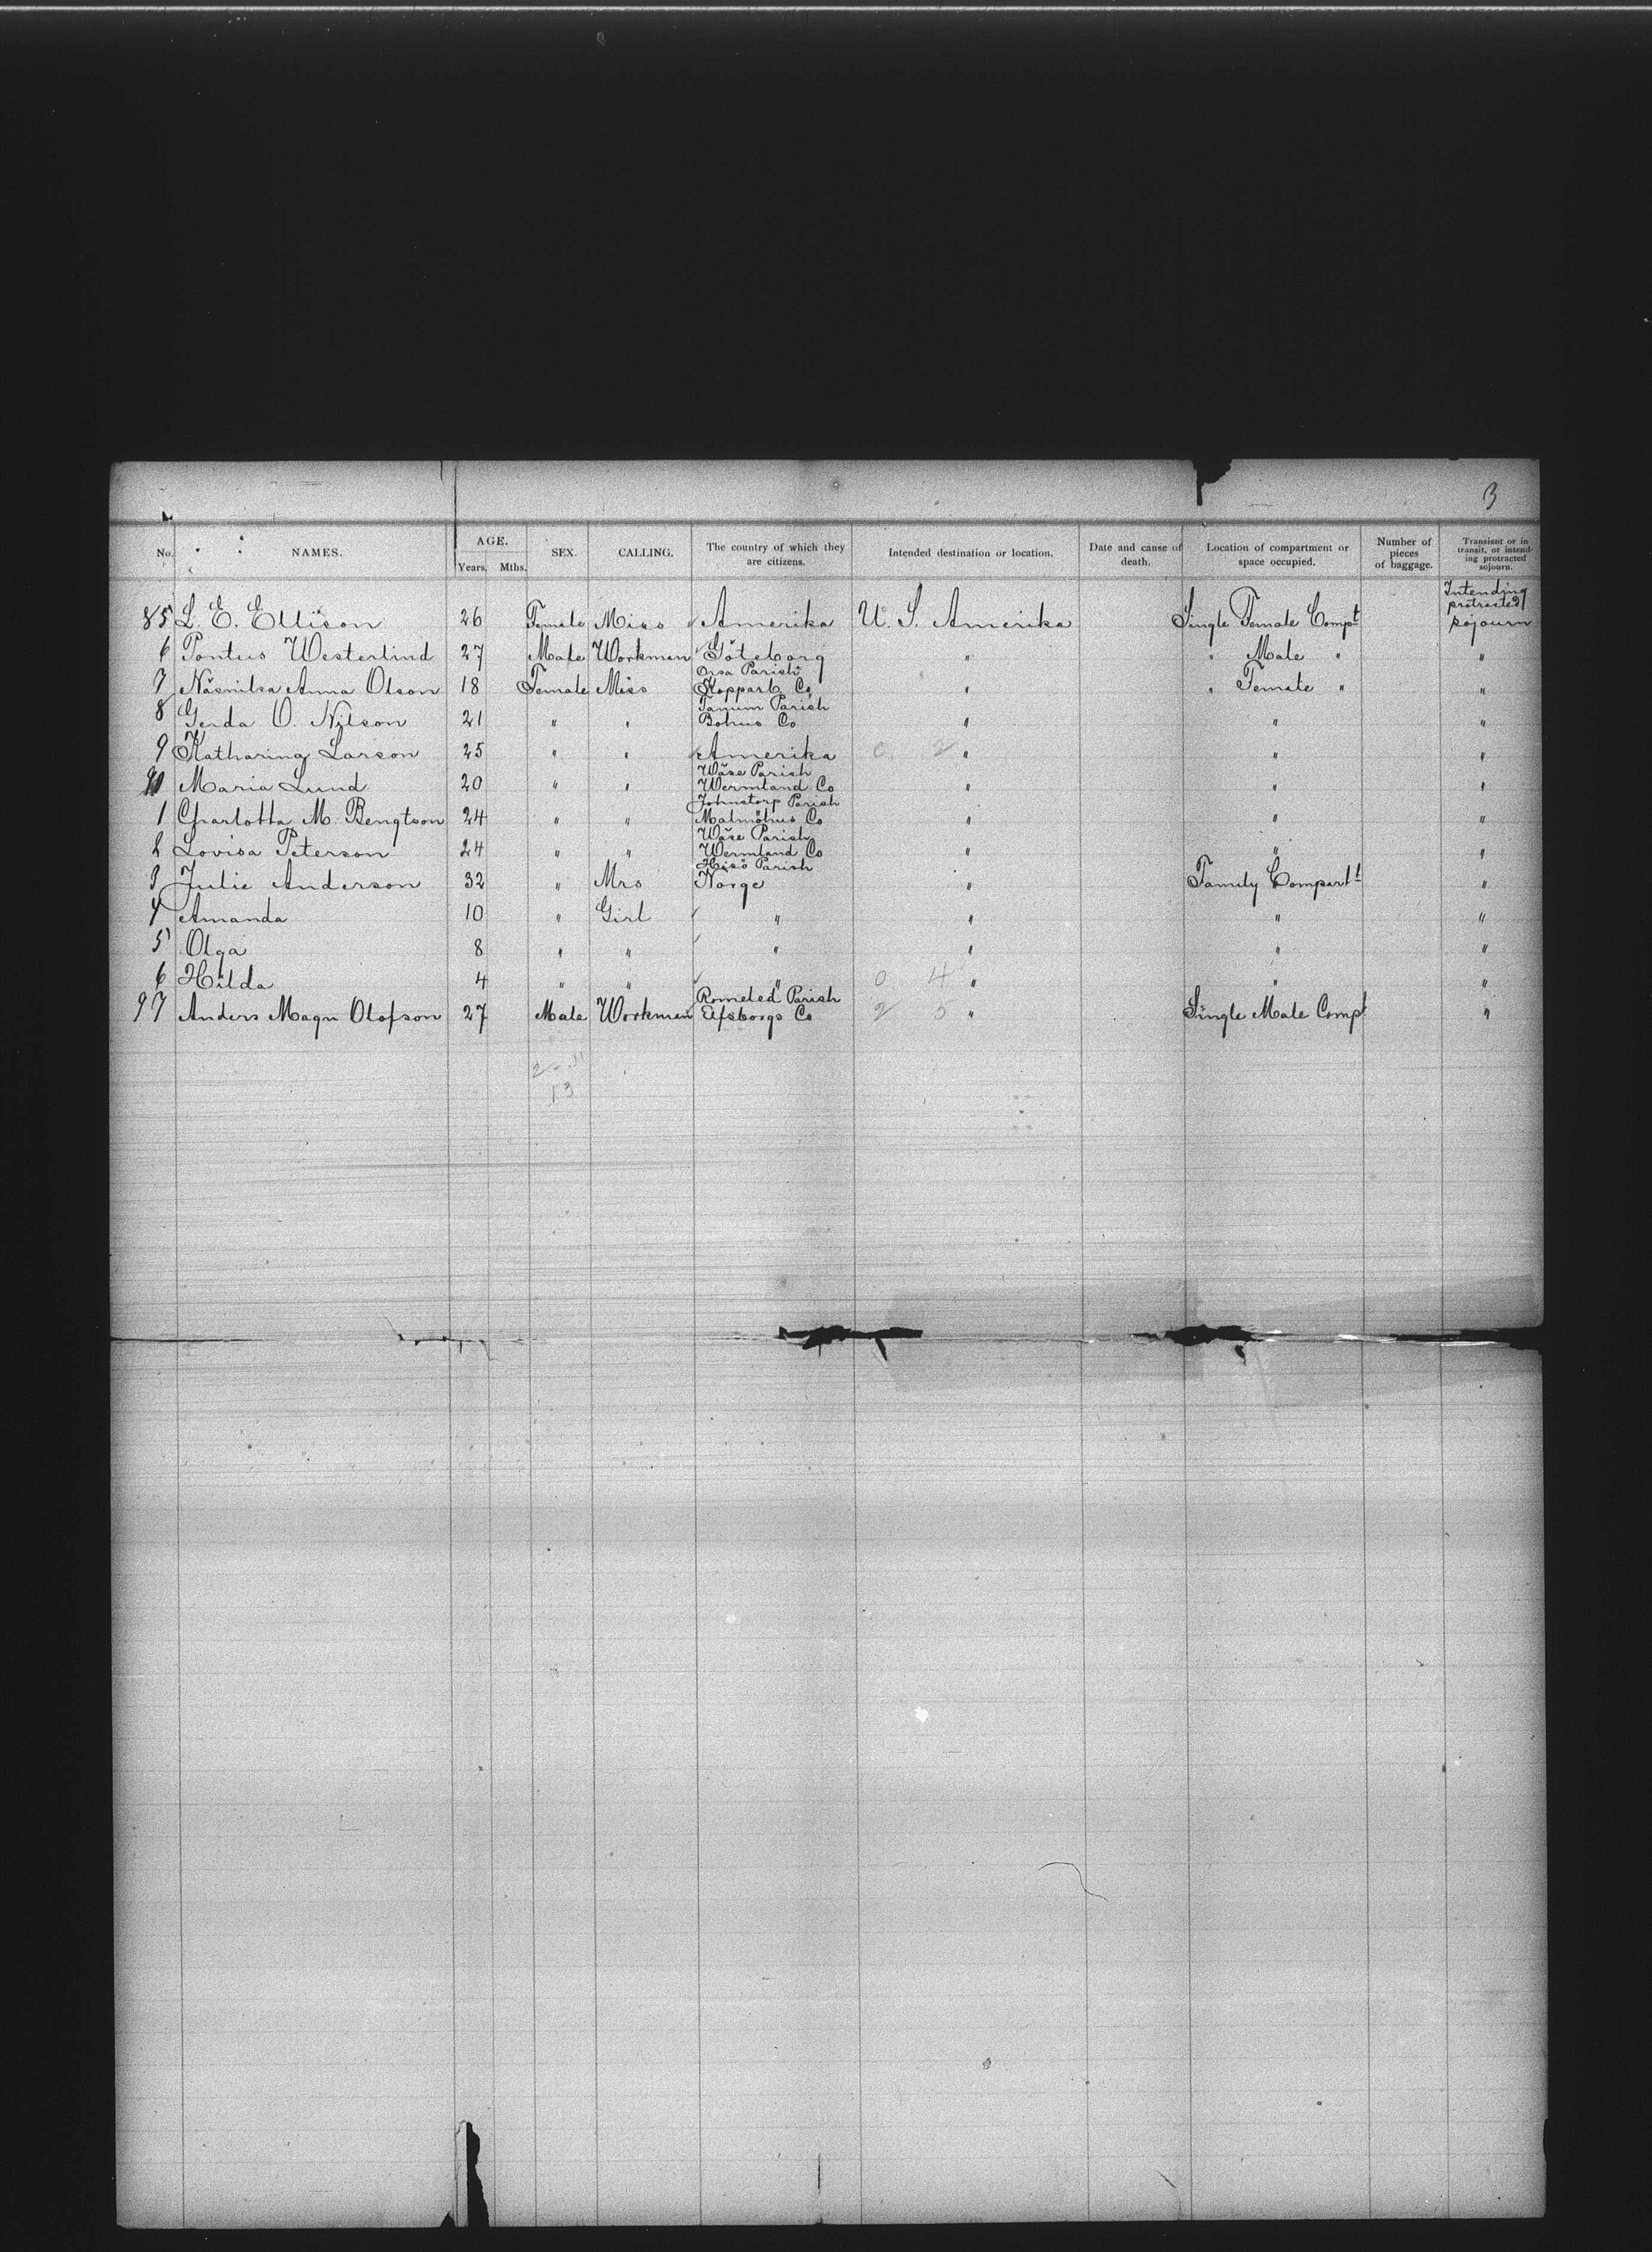 3
No. NAMES. AGE. Years. Mths. SEX. CALLING. The country of which they are citizens. Intended destination or location. Date and cause of death. Location of compartment or space occupied. Number of pieces of baggage. Transient or in transit, or intending protracted sojourn.
85 L. E. Ellison 26 Female Miss Amerika U. S. Amerika Single Female Compt Intending protracted sojourn
6 Pontus Westerlind 27 Male Workman Göteborg " " Male " "
7 Anna Olson 18 Female Miss Orsa Parish Kopparb. Co " " Female " "
8 Gerda O. Nilson 21 " " Tanum Parish Bohus Co " " "
9 Katharina Larson 25 " " Amerika 0 2 " " "
90 Maria Lund 20 " " Wäse Parish Wermland Co " " "
1 Charlotta M. Bengtson 24 " " Johnstorp Parish Malmöhus Co " " "
2 Lovisa Peterson 24 " " Wäse Parish Wermland Co " " "
3 Julie Anderson 32 " Mrs Hisö Parish Norge " Family Compartt "
4 Amanda 10 " Girl " " " "
5 Olga 8 " " " " " "
6 Hilda 4 " " " 0 4 " " "
97 Anders Magn Olofson 27 Male Workman Romeled Parish Elfsborgs Co 2 5 " Single Male Compt "
2 - 11
13